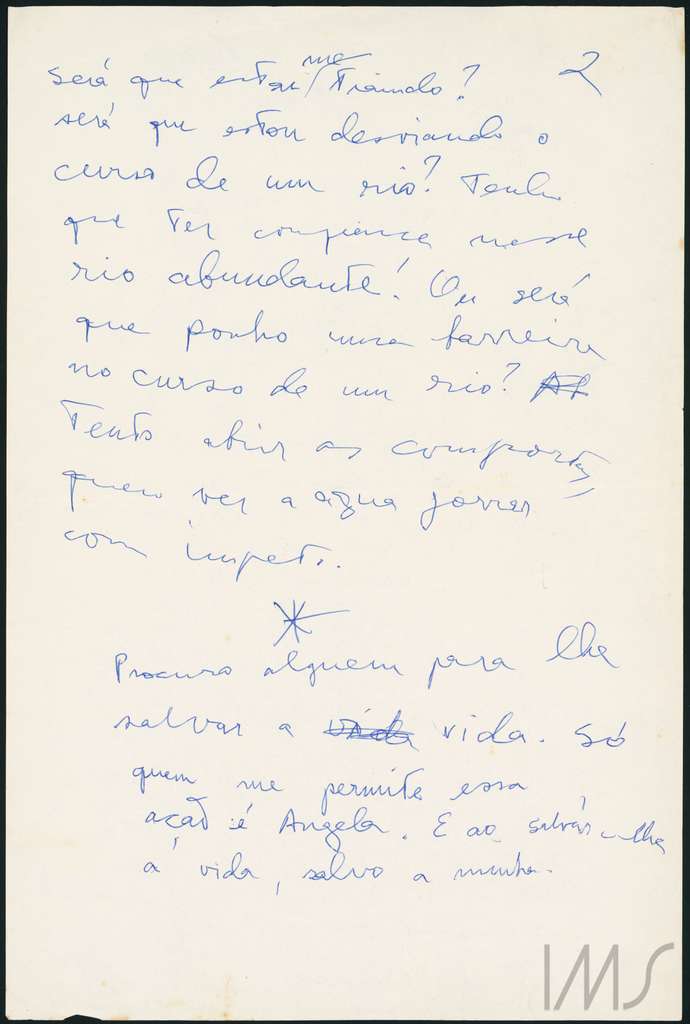 será que estou me traindo? 2
será que estou desviando o
curso de um rio? Tenho
que ter confiança nesse
rio abundante! Ou será
que ponho uma barreira
no curso de um rio?
Tento abrir as comportas,
quero ver a água jorrar
com ímpeto.
*
Procuro alguem para lhe
salvar a vida vida. Só
quem me permite essa
ação é Angela. E ao salvar-lhe
a vida, salvo a minha.
IMS